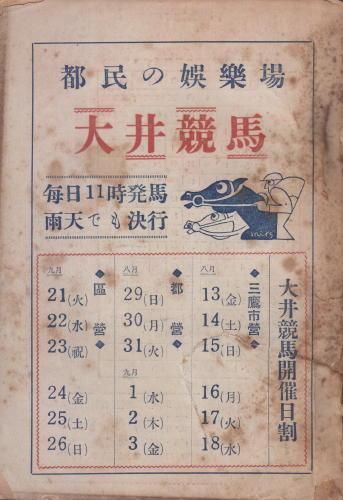 都民の娯樂場
大井競馬
毎日11時発馬
雨天でも決行
mits
大井競馬開催日割
八月
◆三鷹市営◆
13(金)
14(土)
15(日)
16(月)
17(火)
18(水)
八月
◆都営◆
29(日)
30(月)
31(火)
九月
1(水)
2(木)
3(金)
九月
◆區営◆
21(火)
22(水)
23(祝)
24(金)
25(土)
26(日)